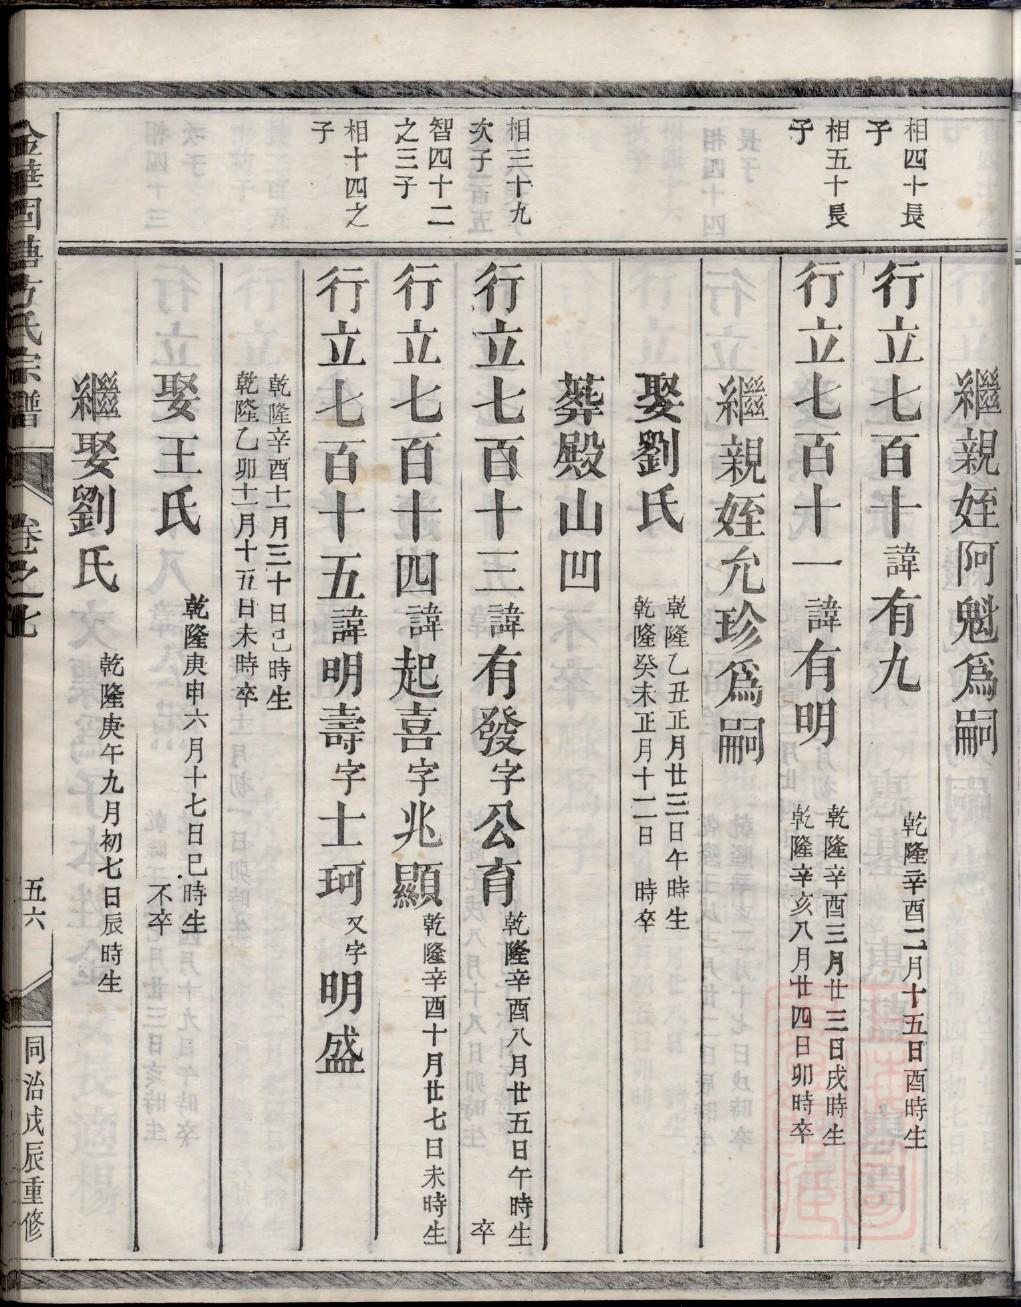 繼親姪阿魁爲嗣
相四十長
子
行立七百十諱有九
乾隆辛酉二月十五日酉時生
相五十長
子
行立七百十一諱有明
乾隆辛酉三月廿三日戌時生
乾隆辛亥八月廿四日卯時卒
繼親姪允珍爲嗣
娶劉氏
乾隆乙丑正月廿三日午時生
乾隆癸未正月十二日 時卒
葬殿山凹
相三十九
次子
行立七百十三諱有發字公育
乾隆辛酉八月廿五日午時生
卒
智四十二
之三子
行立七百十四諱起喜字兆顯
乾隆辛酉十月廿七日未時生
相十四之
子
行立七百十五諱明壽字士珂又字明盛
乾隆辛酉十一月三十日己時生
乾隆乙卯十二月十五日未時卒
娶王氏
乾隆庚申六月十七日巳時生
不卒
繼娶劉氏
乾隆庚午九月初七日辰時生
金華固塘方氏宗譜
卷之七
五六
同治戊辰重修